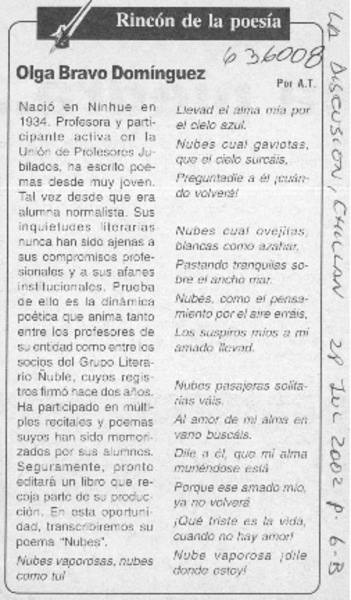 Rincón de la poesía
636008
Olga Bravo Domínguez
Por A.T.
Nació en Ninhue en
1934. Profesora y parti-
cipante activa en la
Unión de Profesores Ju-
bilados, ha escrito poe-
mas desde muy joven.
Tal vez desde que era
alumna normalista. Sus
inquietudes literarias
nunca han sido ajenas a
sus compromisos profe-
sionales y a sus afanes
institucionales. Prueba
de ello es la dinámica
poética que anima tanto
entre los profesores de
su entidad como entre los
socios del Grupo Litera-
rio Ñuble, cuyos regis-
tros firmó hace dos años.
Ha participado en múlti-
ples recitales y poemas
suyos han sido memori-
zados por sus alumnos.
Seguramente, pronto
editará un libro que re-
coja parte de su produc-
ción. En esta oportuni-
dad, transcribiremos su
poema "Nubes".
Nubes vaporosas, nubes
como tul
Llevad el alma mía por
el cielo azul.
Nubes cual gaviotas,
que el cielo surcáis,
Preguntadle a él ¡cuán-
do volverá!
Nubes cual ovejitas,
blancas como azahar,
Pastando tranquilas so-
bre el ancho mar.
Nubes, como el pensa-
miento por el aire erráis,
Los suspiros míos a mi
amado llevad.
Nubes pasajeras solita-
rias váis.
Al amor de mi alma en
vano buscáis.
Dile a él, que mi alma
muriéndose está
Porque ese amado mío,
ya no volverá
¡Qué triste es la vida,
cuando no hay amor!
Nube vaporosa ¡dile
donde estoy!
LA DISCUSION, CHILLAN 28 JUL 2002 p. 6-B